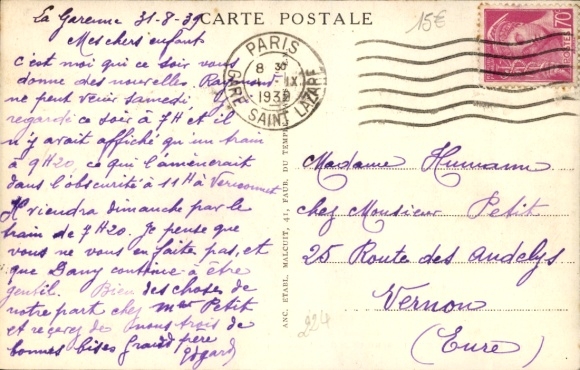 La Garenne 31-8-39
CARTE POSTALE
15€
Mes chers enfants
c'est moi qui ce soir vous
donne des nouvelles. Raymond
ne peut venir samedi.
regardé ce soir à 7H et il
n'y avait affiché qu'un train
à 9H20, ce qui l'amènerait
dans l'obscurité à 11H à Vernonnet
Il viendra dimanche par le
train de 7H20. Je pense que
vous ne vous en faite pas, et
que Dany continue à être
gentil. Bien des choses de
notre part chez Mme Petit
et recevez de nous trois de
bonnes bises Grand père
Edgard
PARIS
8 30
1 - IX
1939
GARE SAINT LAZARE
70c
POSTES
ANC. ETABL. MALCUIT, 41, FAUB. DU TEMPLE, PARIS
Madame Humann
chez Monsieur Petit
25 Route des Andelys
Vernon
(Eure)
224